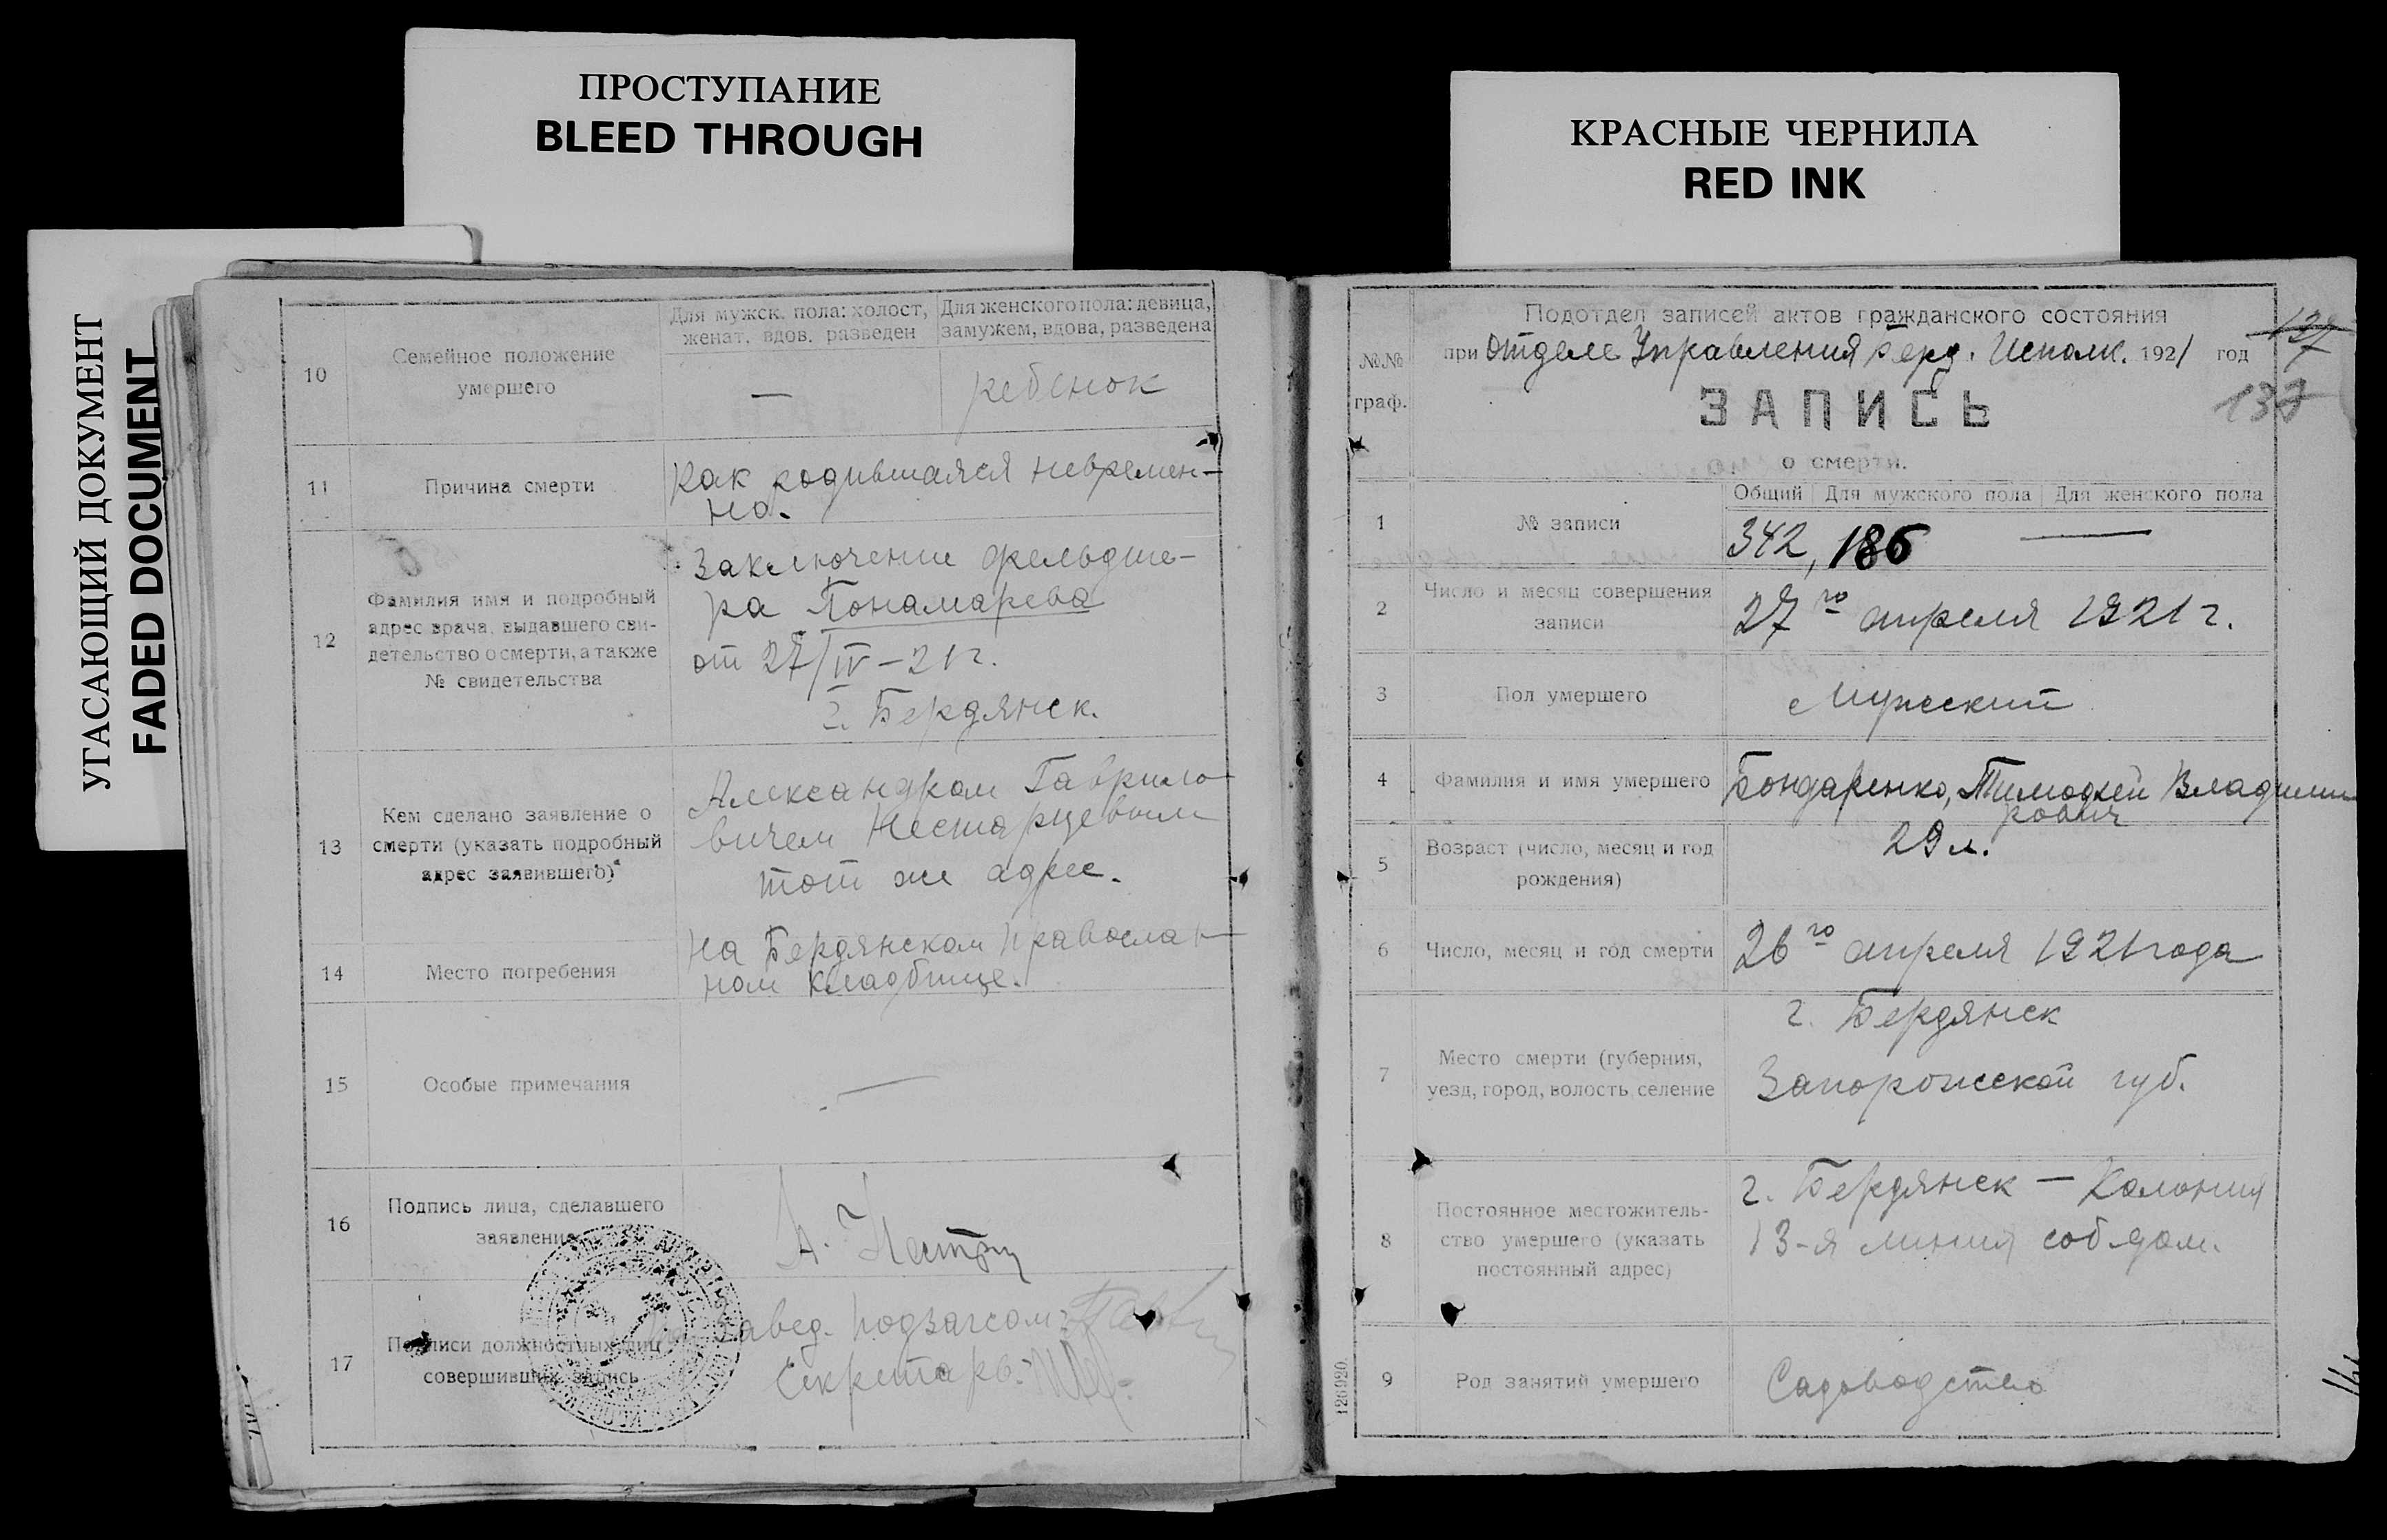 ПРОСТУПАНИЕ
BLEED THROUGH
КРАСНЫЕ ЧЕРНИЛА
RED INK
УГАСАЮЩИЙ ДОКУМЕНТ
FADED DOCUMENT
10
Семейное положение
умершего
Для мужск. пола: холост,
женат, вдов, разведен
Для женского пола: девица,
замужем, вдова, разведена
—
ребенок
11
Причина смерти
Как родившаяся невремен-
но.
12
Фамилия имя и подробный
адрес врача, выдавшего сви-
детельство о смерти, а также
№ свидетельства
Заключение фельдше-
ра Понамарева
от 27/IV-21г.
г. Бердянск.
13
Кем сделано заявление о
смерти (указать подробный
адрес заявившего)
Александром Гаврило-
вичем Нестарцевым
тот же адрес.
14
Место погребения
На Бердянском православ-
ном кладбище.
15
Особые примечания
—
16
Подпись лица, сделавшего
заявление
А. Нестрц
17
Подписи должностных лиц
совершивших запись
Завед. подзагсом:
Секретарь:
№№
граф.
Подотдел записей актов гражданского состояния
при Отделе Управления Берд. Исполк. 1921 год
137
137
ЗАПИСЬ
о смерти.
1
№ записи
Общий
Для мужского пола
Для женского пола
342, 186 —
2
Число и месяц совершения
записи
27го апреля 1921 г.
3
Пол умершего
Мужеский
4
Фамилия и имя умершего
Бондаренко, Тимофей Владими
рович
5
Возраст (число, месяц и год
рождения)
29 л.
6
Число, месяц и год смерти
26го апреля 1921 года
7
Место смерти (губерния,
уезд, город, волость, селение
г. Бердянск
Запорожской губ.
8
Постоянное местожитель-
ство умершего (указать
постоянный адрес)
г. Бердянск — Колония
13-я линия соб. дом.
9
Род занятий умершего
Садоводство
126920.